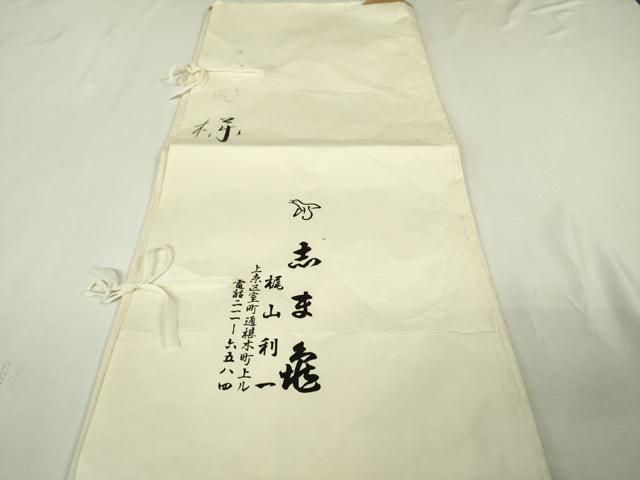 様
志ま亀
梶山利一
上京区室町通椹木町上ル
電話二一一―六五八四